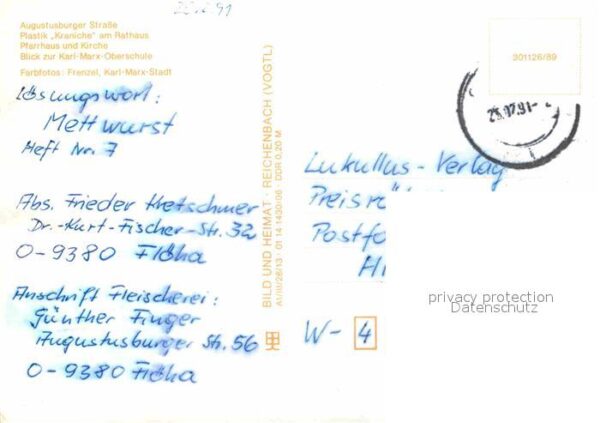 25.7.91
Augustusburger Straße
Plastik „Kraniche" am Rathaus
Pfarrhaus und Kirche
Blick zur Karl-Marx-Oberschule
Farbfotos: Frenzel, Karl-Marx-Stadt
Lösungswort:
Mettwurst
Heft Nr. 7
Abs. Frieder Kretschmer
Dr.-Kurt-Fischer-Str. 32
O-9380 Flöha
Anschrift Fleischerei:
Günther Finger
Augustusburger Str. 56
O-9380 Flöha
BILD UND HEIMAT · REICHENBACH (VOGTL)
A1/III/26/13 · 01 14 1430/06 · DDR 0,20 M
301126/89
25.07.91-
Lukullus-Verlag
Preisrä
Postfa
H
W-4
privacy protection
Datenschutz